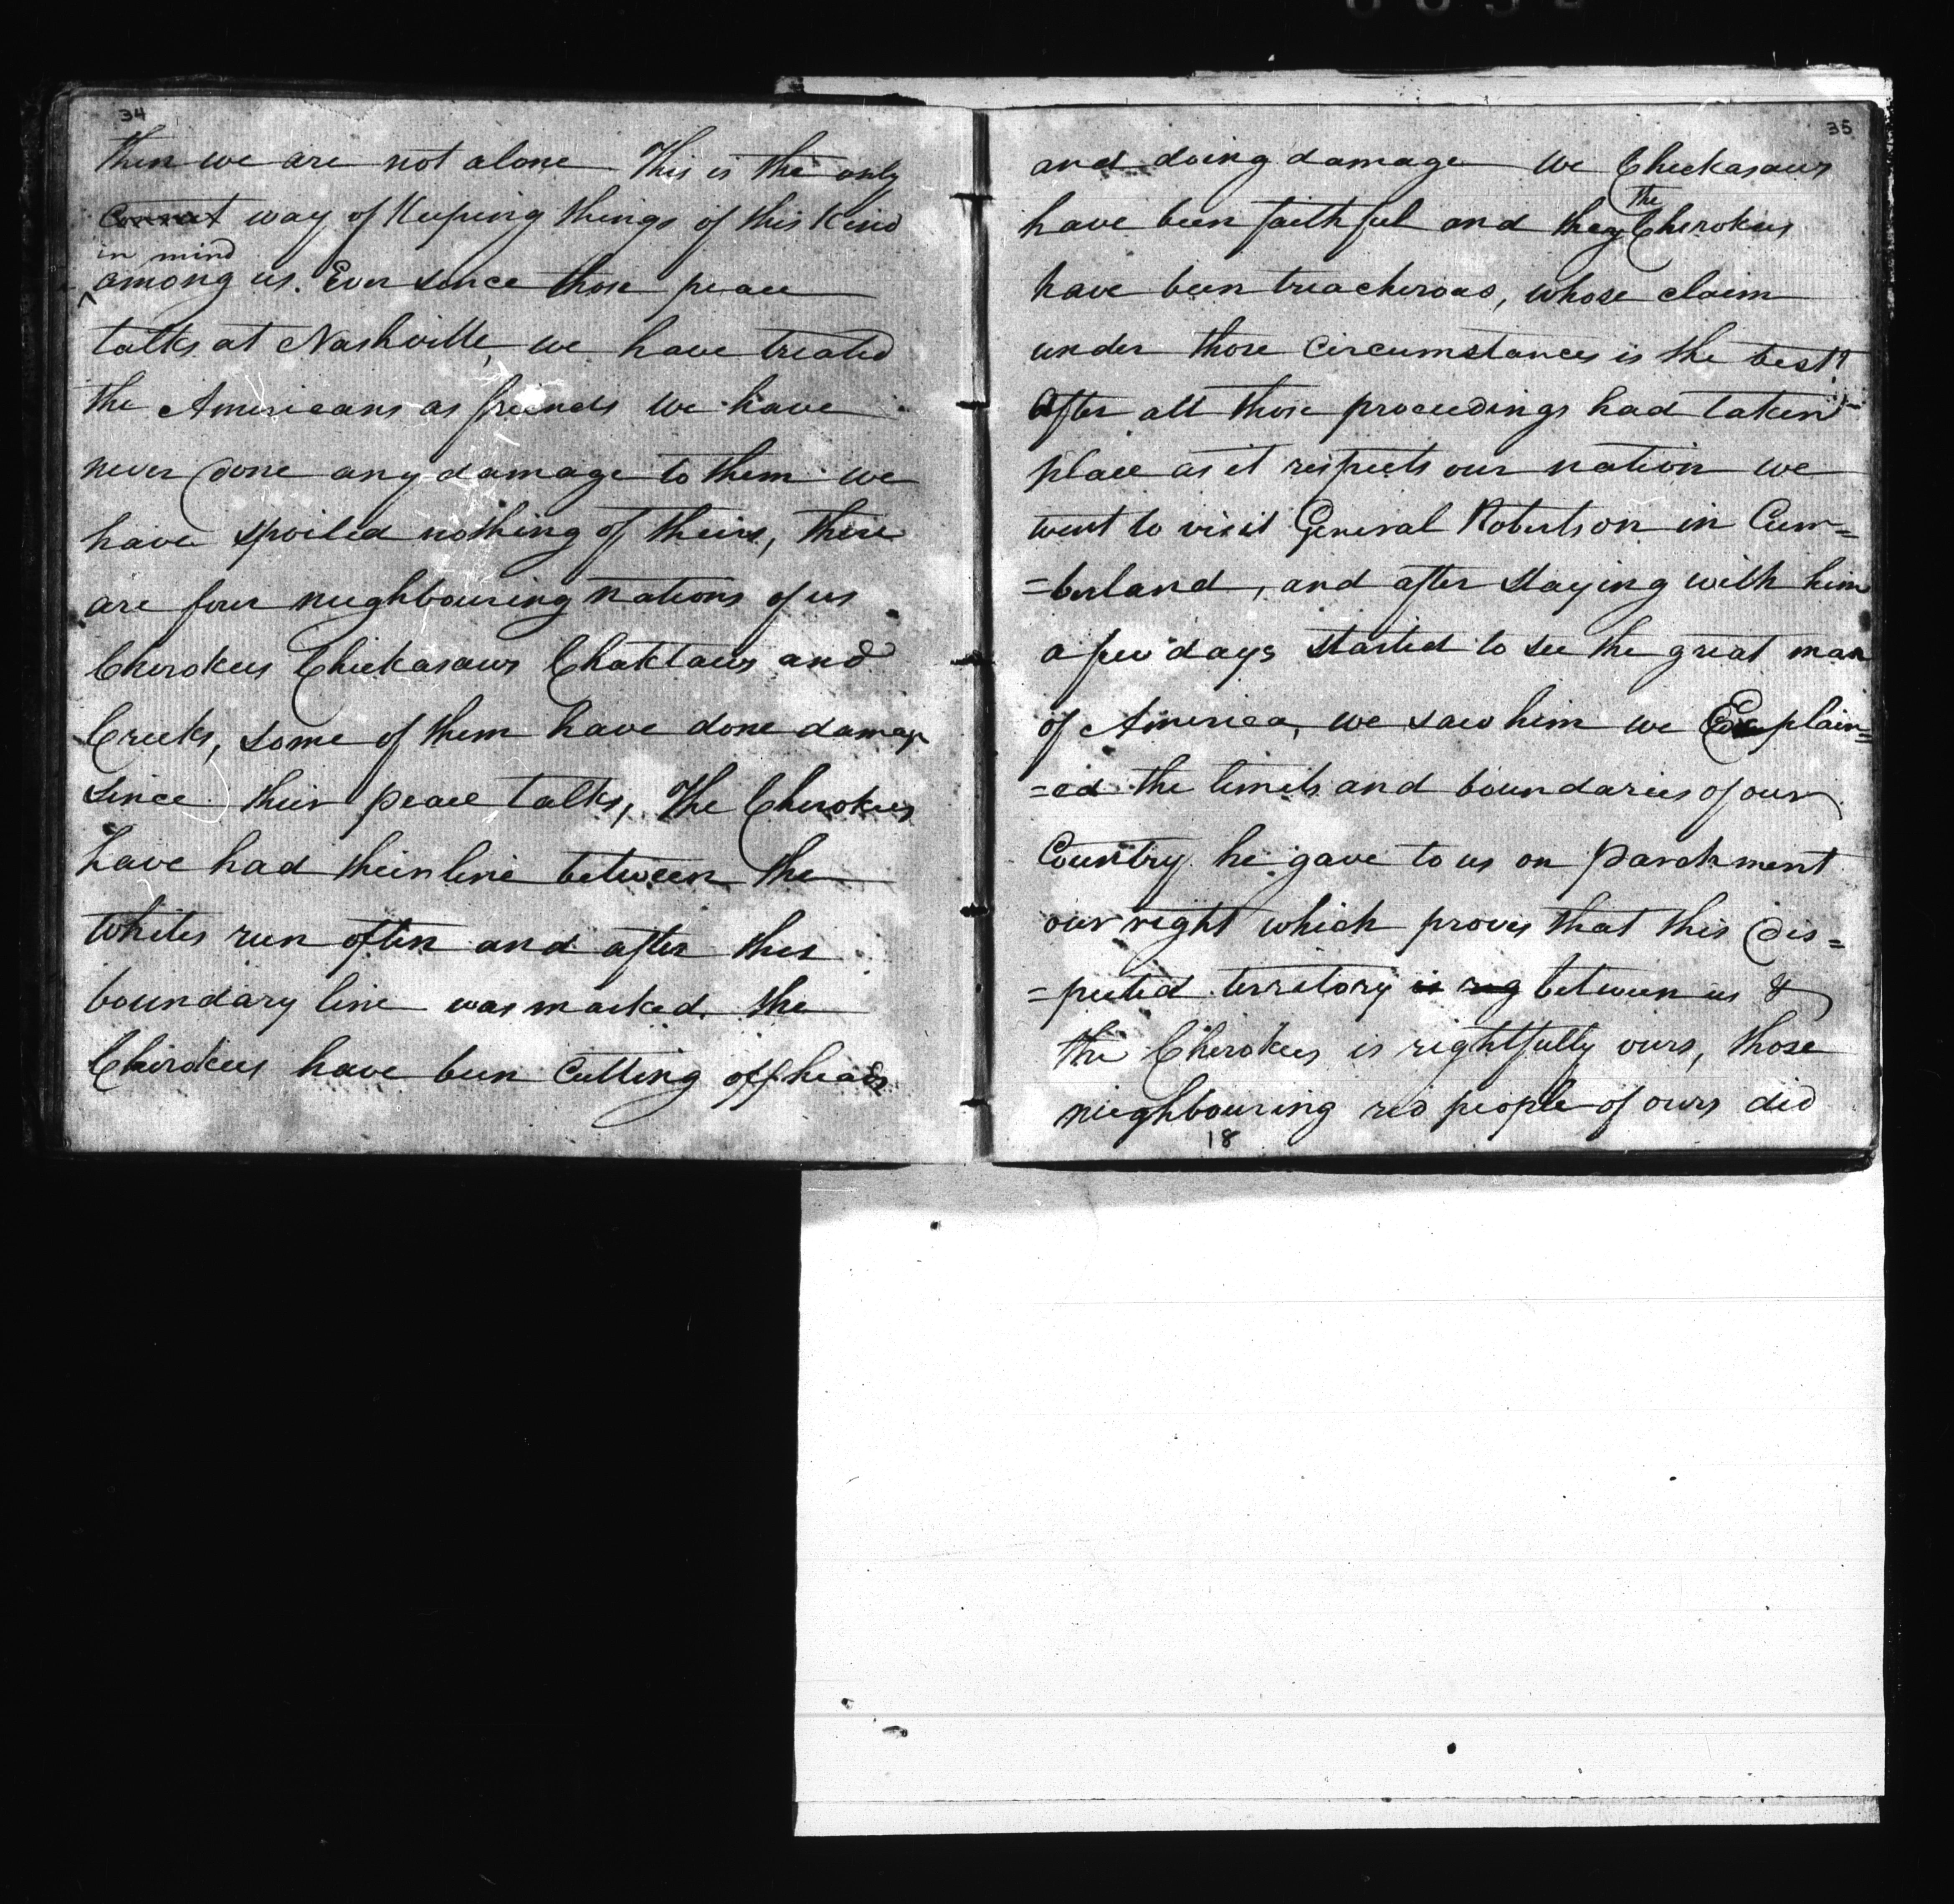 34
then we are not alone This is the only
Correct way of Keeping things of this Kind
in mind
among us. Ever since those peace
talks at Nashville, we have treated
the Americans as friends we have
never done any damage to them we
have spoiled nothing of theirs, there
are four neighbouring nations of us
Cherokees Chickasaws Chaktaws and
Creeks, some of them have done damage
since their peace talks, The Cherokees
have had their line between the
whites run often and after this
boundary line was marked the
Cherokees have been Cutting off heads
35
and doing damage We Chickasaws
the
have been faithful and they Cherokees
have been treacherous, whose claim
under those Circumstances is the best?
After all those proceedings had taken
place as it respects our nation we
went to visit General Robertson in Cum=
=berland, and after staying with him
a few days started to see the great man
of America, we saw him we Explain=
=ed the limits and boundaries of our
Country he gave to us on parchment
our right which proves that this dis=
=puted territory is rig between us &
the Cherokees is rightfully ours, those
neighbouring red people of ours did
18